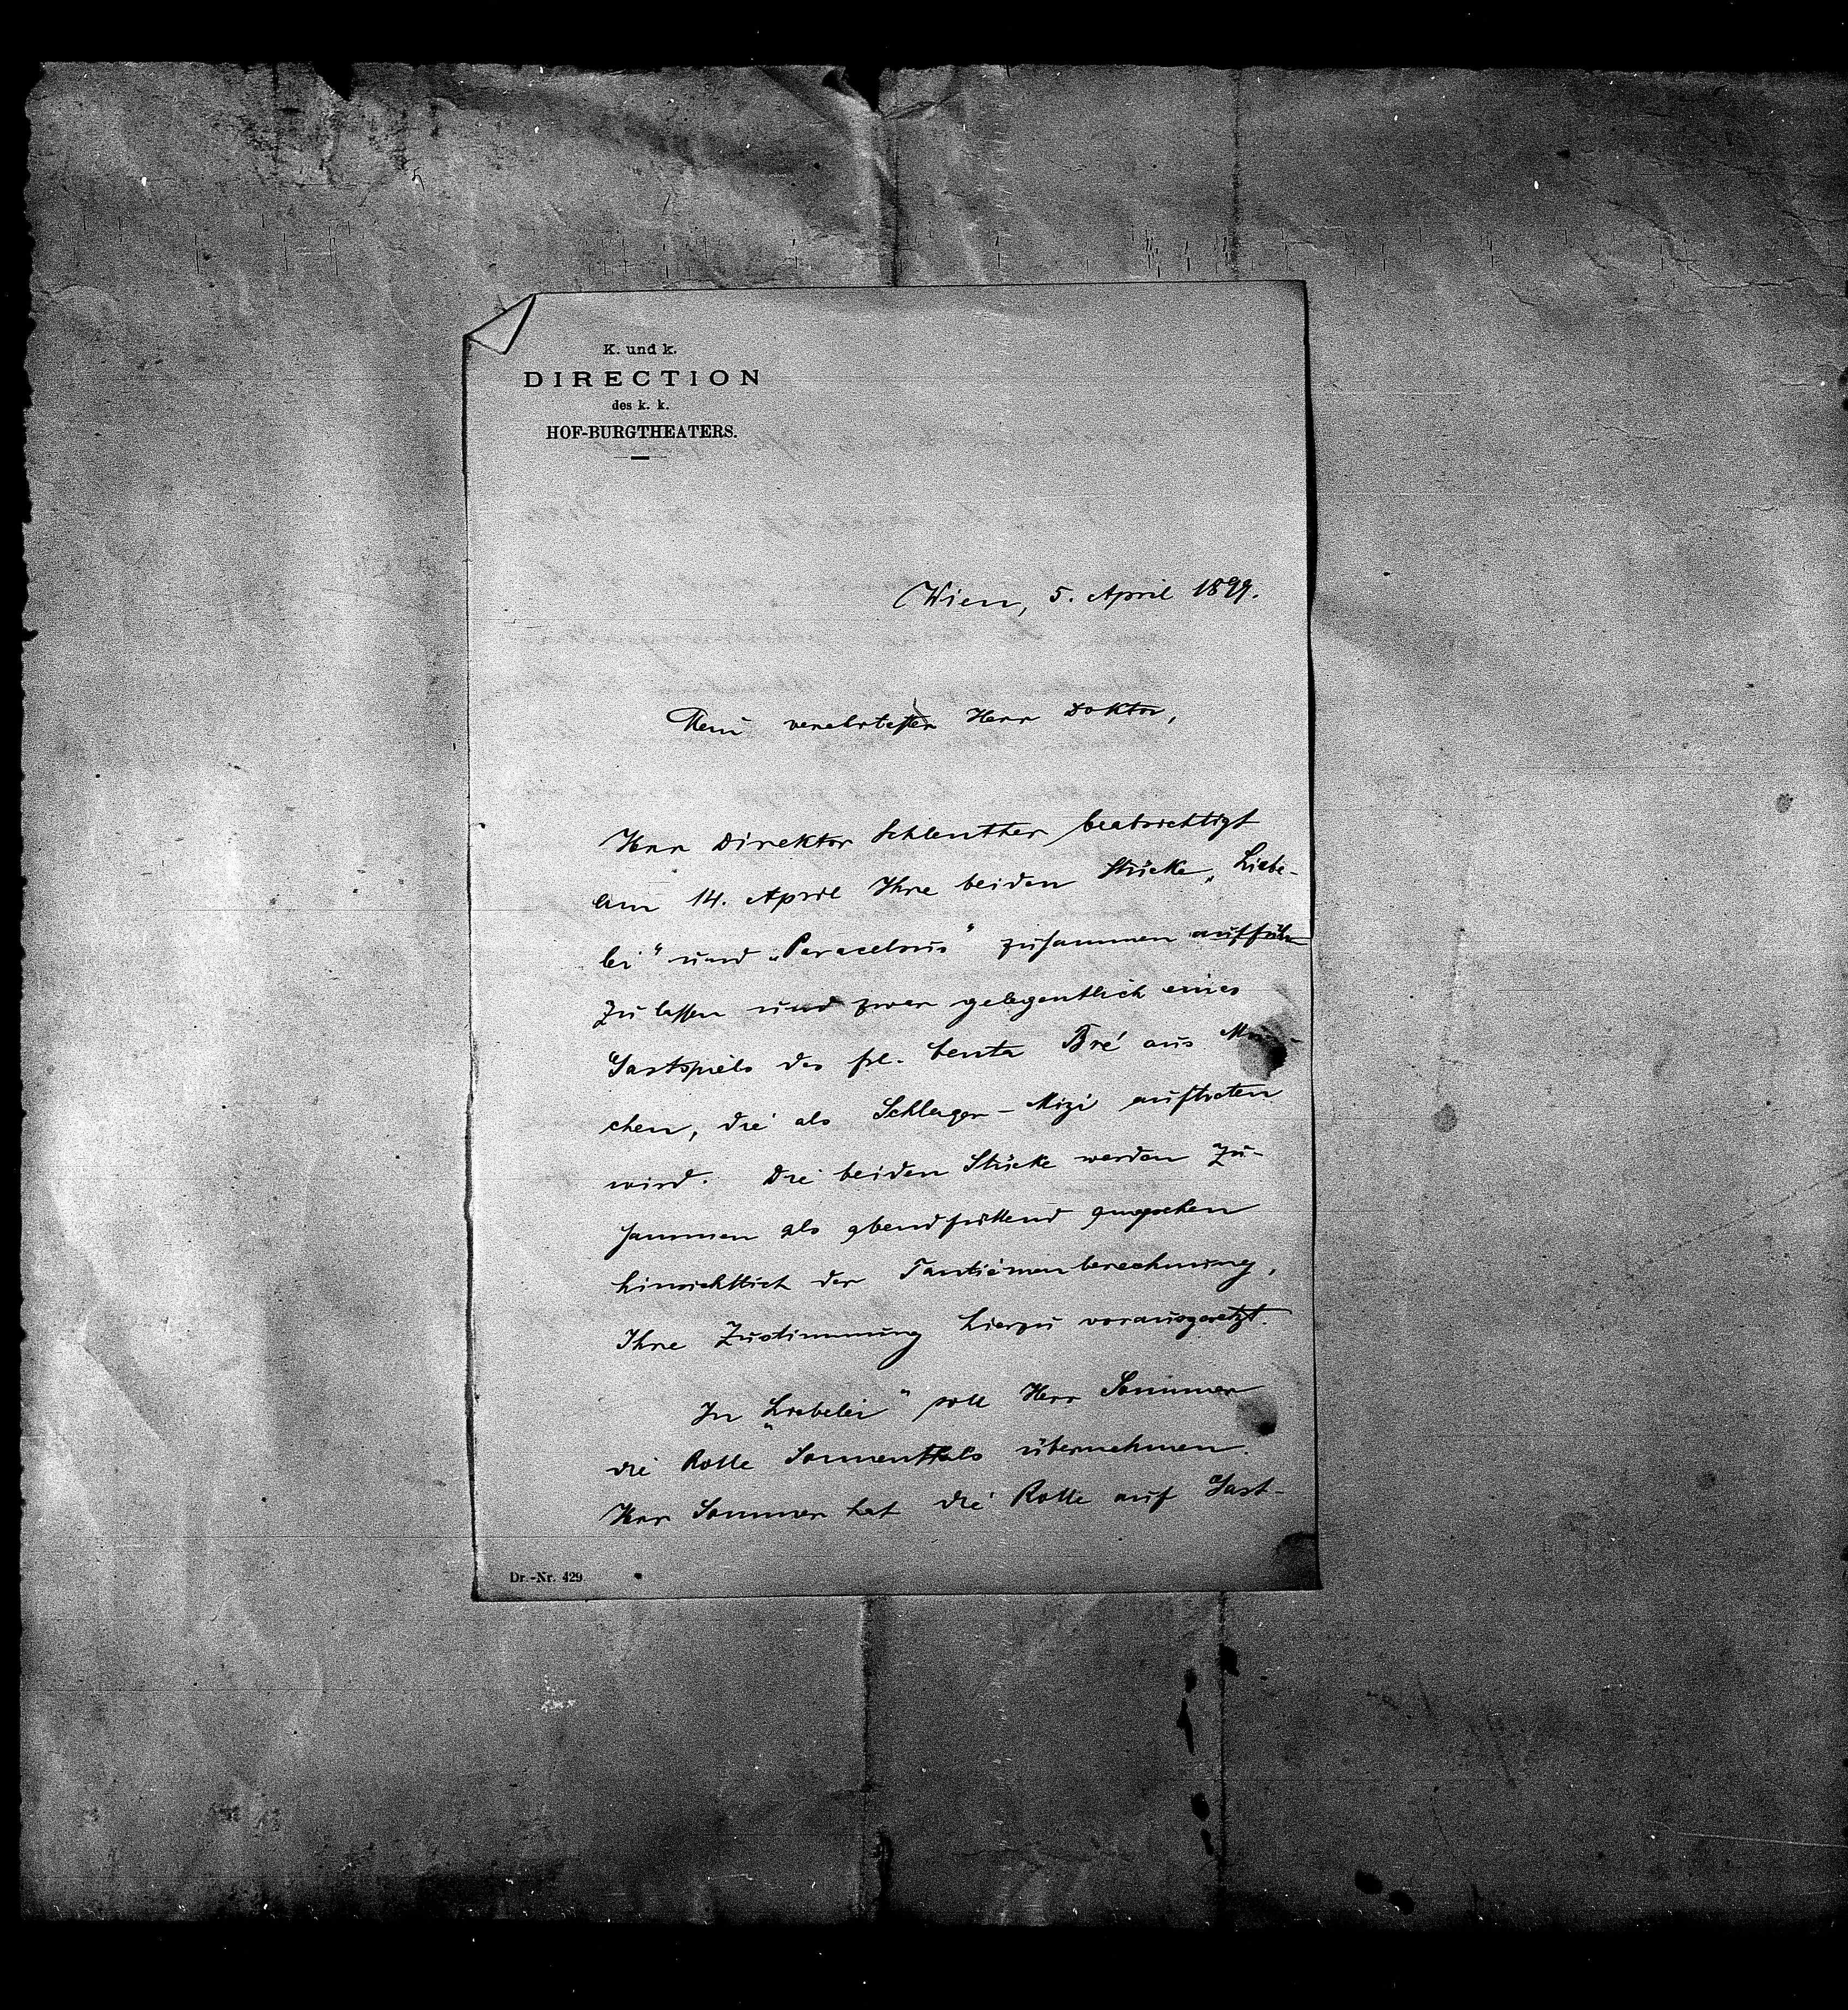 K. und k.
DIRECTION
des k. k.
HOF-BURGTHEATERS.
Wien, 5. April 1899.
Mein verehrtester Herr Doktor,
Herr Direktor Schlenther beabsichtigt
am 14. April Ihre beiden Stücke „Liebe-
lei" und „Paracelsus" zusammen aufführ
zu lassen und zwar gelegentlich eines
Gastspiels des frl. Bré aus
chen, die als Schlager-Mizi auftreten
wird. Die beiden Stücke werden zu-
sammen als abendfüllend angesehen
hinsichtlich der Tantièmenberechnung,
Ihre Zustimmung hierzu vorausgesetzt.
In „Liebelei" soll Herr Sommer
die Rolle Sonnenthals übernehmen.
Herr Sommer hat die Rolle auf Gast-
Dr.-Nr. 429